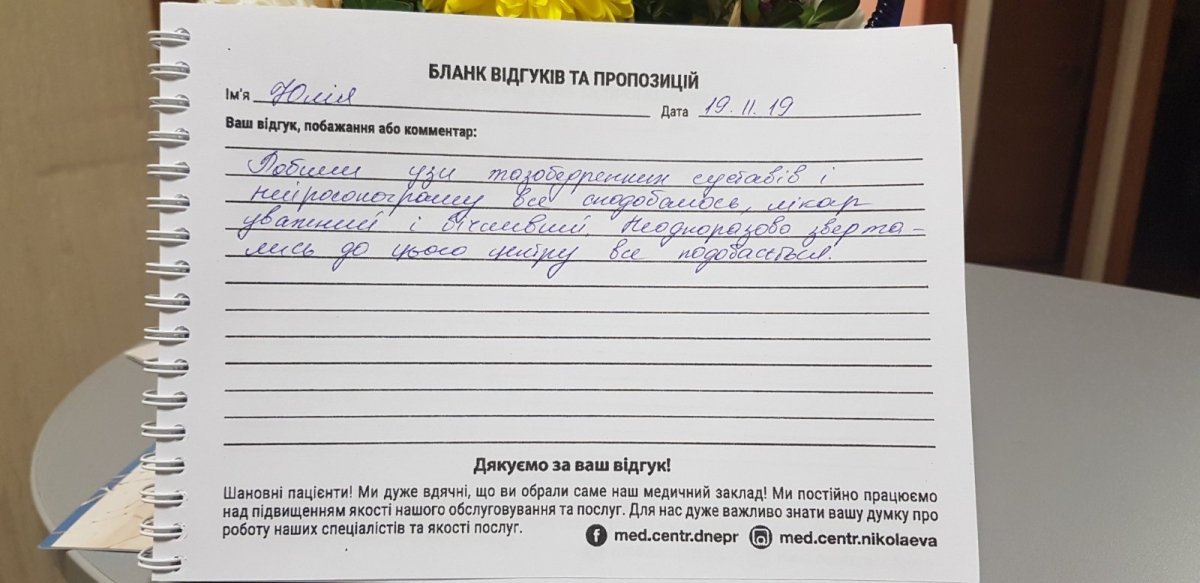 БЛАНК ВІДГУКІВ ТА ПРОПОЗИЦІЙ
Ім'я Юлія Дата 19.11.19
Ваш відгук, побажання або комментар:
Робили узи тазобедренних суставів і
нейросонограму все сподобалось, лікар
уважний і вічливий. Неодноразово зверта-
лись до цього центру все подобається.
Дякуємо за ваш відгук!
Шановні пацієнти! Ми дуже вдячні, що ви обрали саме наш медичний заклад! Ми постійно працюємо
над підвищенням якості нашого обслуговування та послуг. Для нас дуже важливо знати вашу думку про
роботу наших спеціалістів та якості послуг.
med.centr.dnepr med.centr.nikolaeva